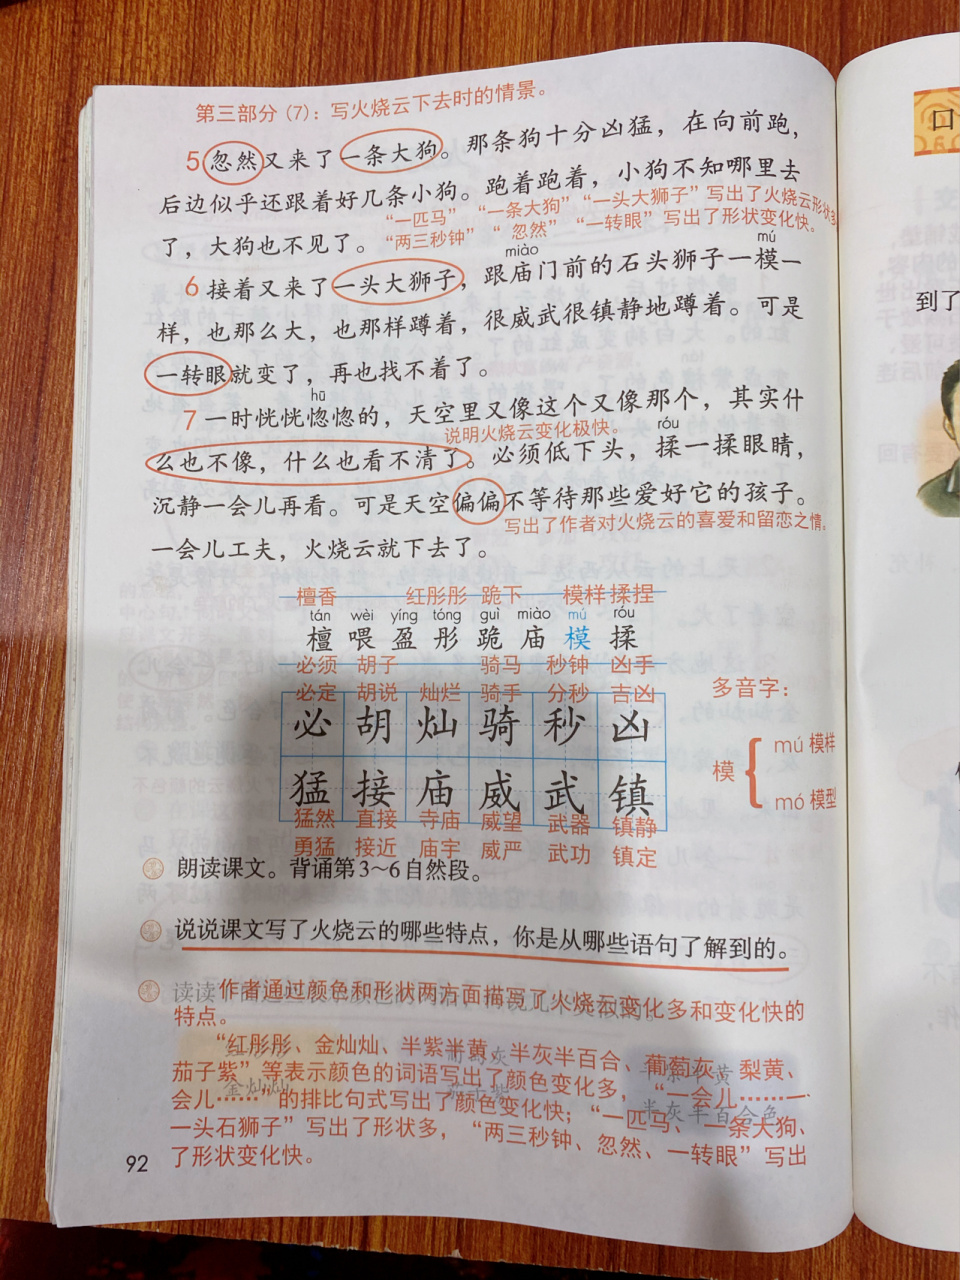 第三部分(7)：写火烧云下去时的情景。
5 忽然又来了一条大狗。那条狗十分凶猛，在向前跑，
后边似乎还跟着好几条小狗。跑着跑着，小狗不知哪里去
“一匹马” “一条大狗” “一头大狮子”写出了火烧云形状多
了，大狗也不见了。 “两三秒钟” “忽然” “一转眼”写出了形状变化快。
miào mú
6 接着又来了一头大狮子，跟庙门前的石头狮子一模一
样，也那么大，也那样蹲着，很威武很镇静地蹲着。可是
一转眼就变了，再也找不着了。
hū
7 一时恍恍惚惚的，天空里又像这个又像那个，其实什
说明火烧云变化极快。 róu
么也不像，什么也看不清了。必须低下头，揉一揉眼睛，
沉静一会儿再看。可是天空偏偏不等待那些爱好它的孩子。
写出了作者对火烧云的喜爱和留恋之情。
一会儿工夫，火烧云就下去了。
檀香 红彤彤 跪下 模样 揉捏
tán wèi yíng tóng guì miào mú róu
檀 喂 盈 彤 跪 庙 模 揉
必须 胡子 骑马 秒钟 凶手
必定 胡说 灿烂 骑手 分秒 吉凶
必 胡 灿 骑 秒 凶
猛 接 庙 威 武 镇
猛然 直接 寺庙 威望 武器 镇静
勇猛 接近 庙宇 威严 武功 镇定
多音字：
模 { mú 模样
mó 模型
朗读课文。背诵第3～6自然段。
说说课文写了火烧云的哪些特点，你是从哪些语句了解到的。
读读
作者通过颜色和形状两方面描写了火烧云变化多和变化快的
特点。
“红彤彤、金灿灿、半紫半黄、半灰半百合、葡萄灰、梨黄、
茄子紫”等表示颜色的词语写出了颜色变化多，“一会儿……一
会儿……”的排比句式写出了颜色变化快；“一匹马、一条大狗、
一头石狮子”写出了形状多，“两三秒钟、忽然、一转眼”写出
了形状变化快。
92
口
到了